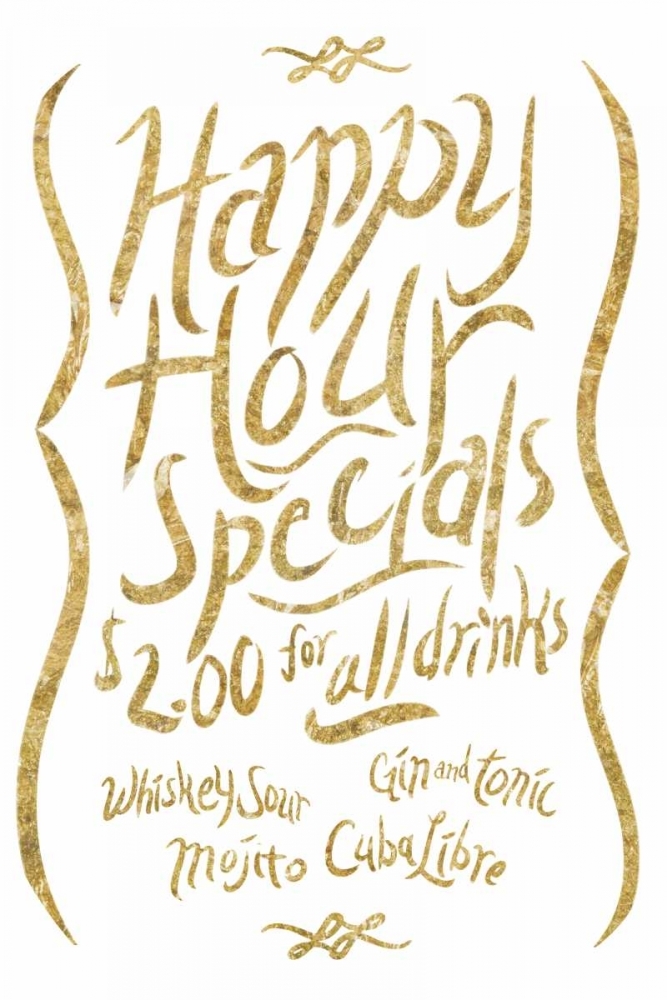 Happy
Hour
Specials
$2.00 for all drinks
Whiskey Sour
Gin and tonic
Mojito
Cuba Libre